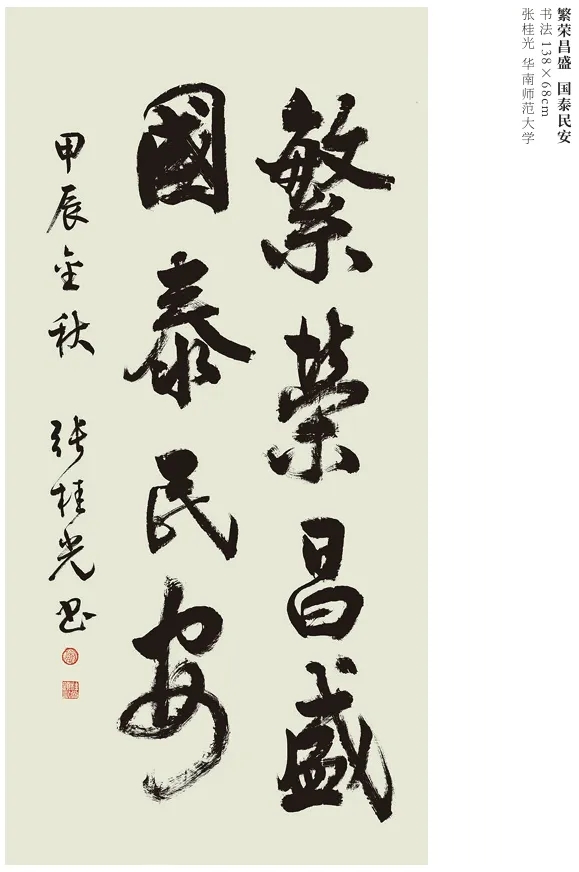 繁荣昌盛 国泰民安
书法 138×68cm
张桂光 华南师范大学
繁榮昌盛
國泰民安
甲辰金秋 張桂光書